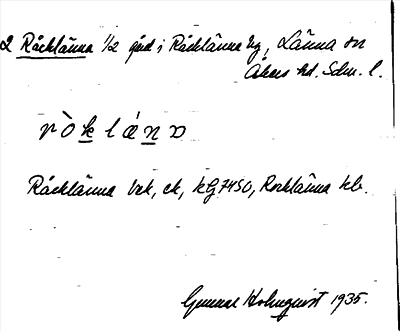 2 Råcklänna ½ gård i Råcklänna by, Länna sn
Åkers hd. Sdm. l.
rò k l ǽ n a
Råcklänna bek, ek, kG7450, Rocklänna kb.
Gunnar Holmquist 1935.